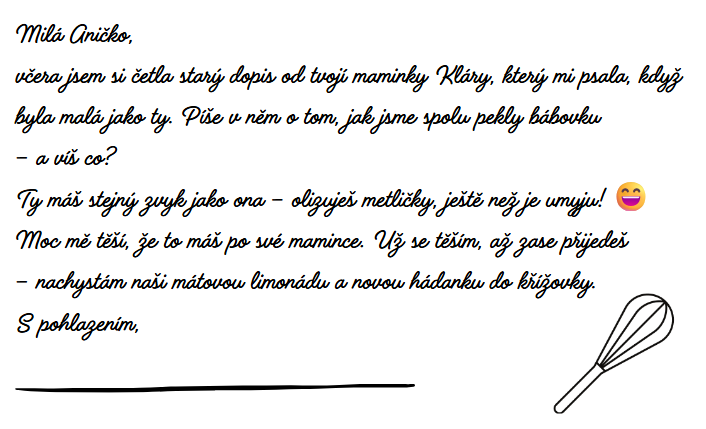 Milá Aničko,
včera jsem si četla starý dopis od tvojí maminky Kláry, který mi psala, když
byla malá jako ty. Píše v něm o tom, jak jsme spolu pekly bábovku
– a víš co?
Ty máš stejný zvyk jako ona – olizuješ metličky, ještě než je umyju! 😄
Moc mě těší, že to máš po své mamince. Už se těším, až zase přijedeš
– nachystám naši mátovou limonádu a novou hádanku do křížovky.
S pohlazením,